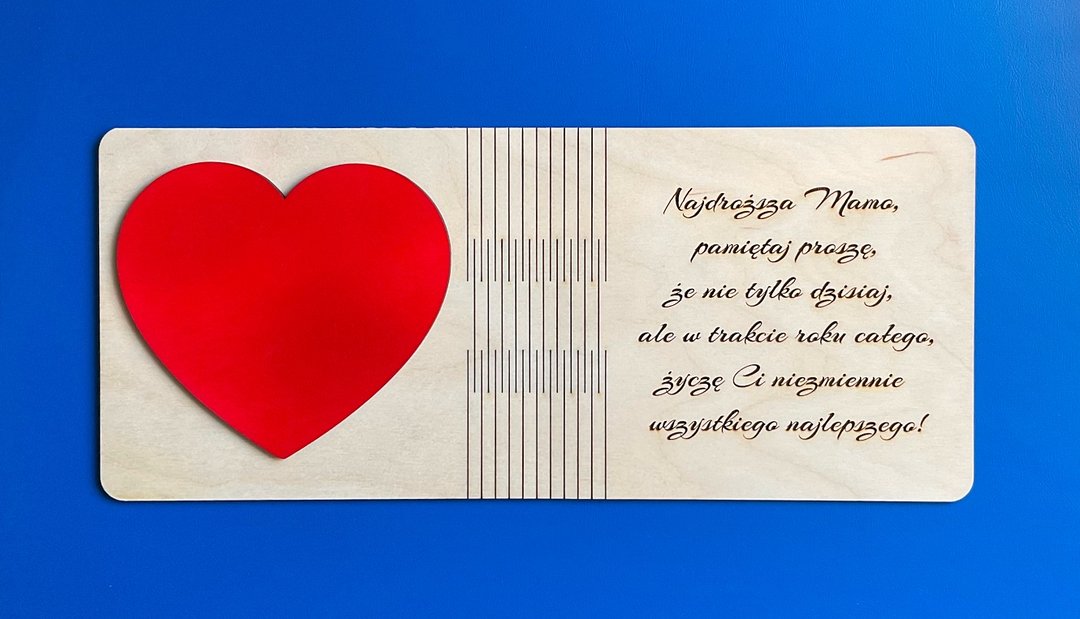 Najdroższa Mamo,
pamiętaj proszę,
że nie tylko dzisiaj,
ale w trakcie roku całego,
życzę Ci niezmiennie
wszystkiego najlepszego!